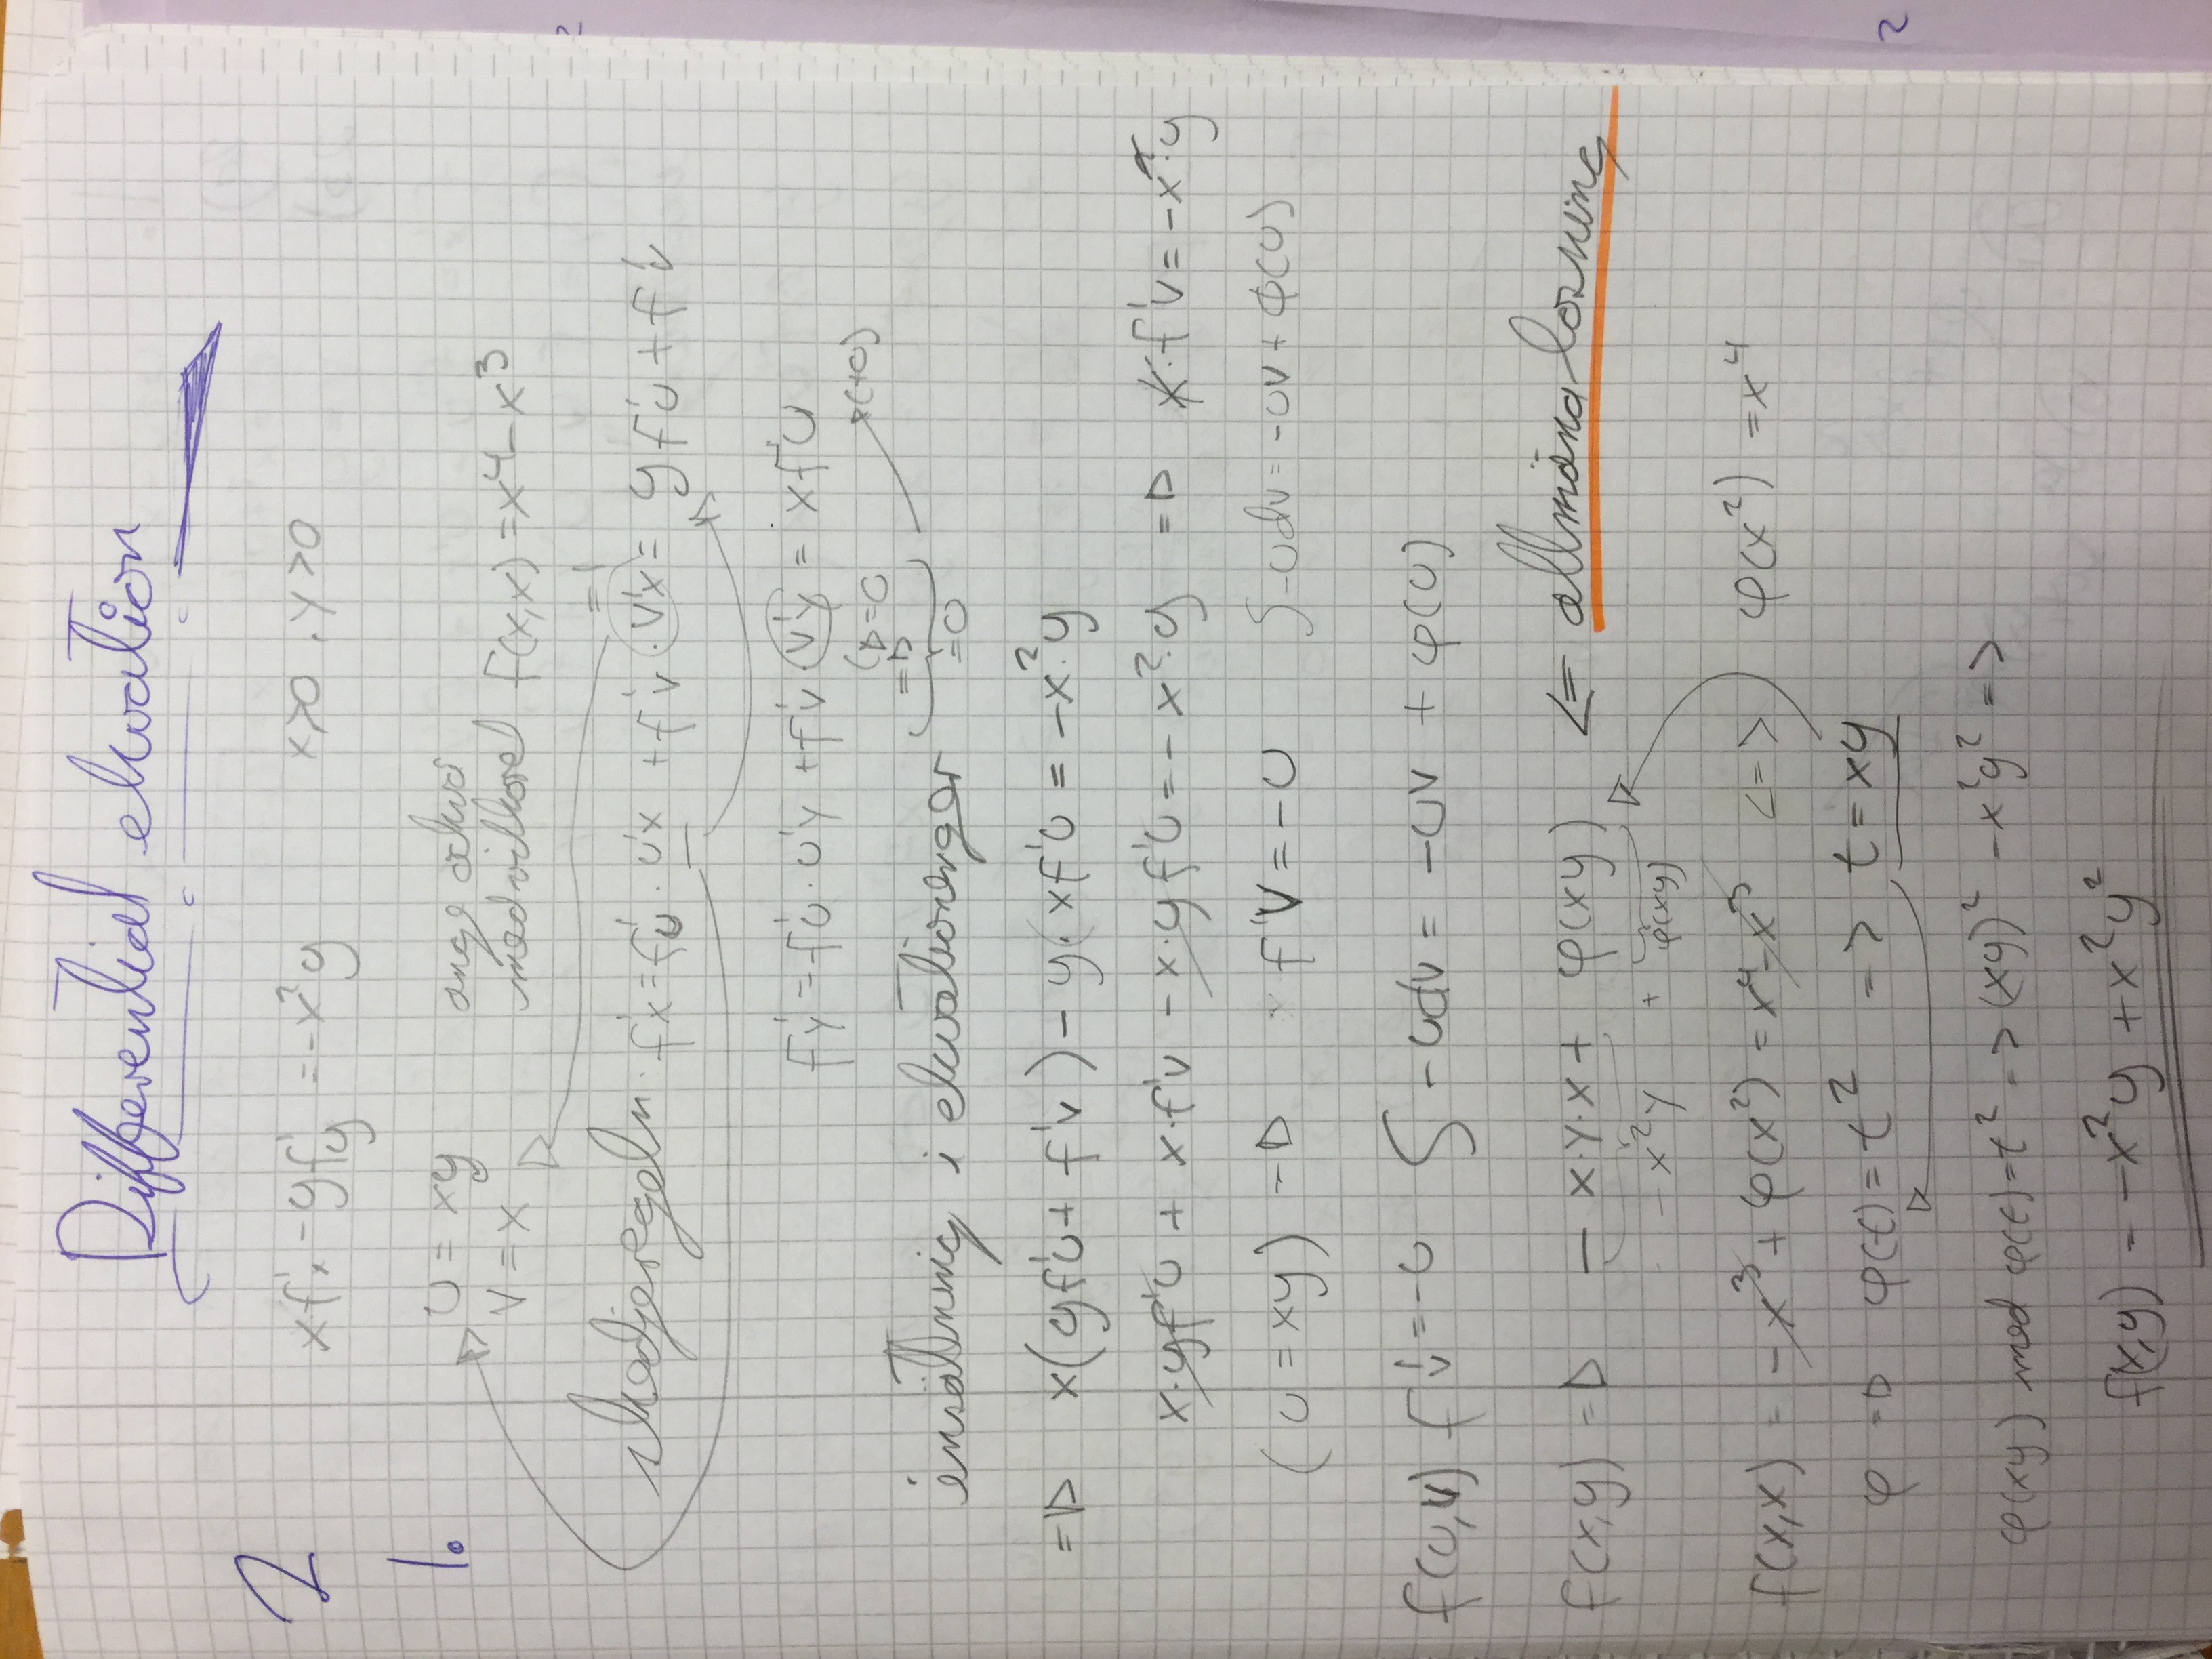 Differential ekvation
2 xf'x - yf'y = -x²y x>0, y>0
1. u = xy ange också
v = x med villkoret f(x,x) = x⁴-x³
=1
kedjeregeln. f'x = f'u · u'x + f'v · v'x = yf'u + f'v
f'y = f'u · u'y + f'v · v'y = xf'u
(▷=0 (+0)
=▷
insättning i ekvationen ger =0
=▷ x(yf'u + f'v) - y·xf'u = -x²·y
x·yf'u + x·f'v - x·yf'u = -x²·y =▷ x·f'v = -x²·y
(u = xy) -▷ f'v = -u ∫-udv = -uv + φ(u)
f(u,v) f'v = -u ∫ -udv = -uv + φ(u)
f(x,y) =▷ - x·y·x + φ(xy) <= allmäna lösning
-x²y + φ(xy)
f(x,x) = -x³ + φ(x²) = x⁴-x³ <=> φ(x²) = x⁴
φ =▷ φ(t) = t² => t = xy
φ(xy) med φ(t) = t² => (xy)² - x²y² =>
f(x,y) = -x²y + x²y²